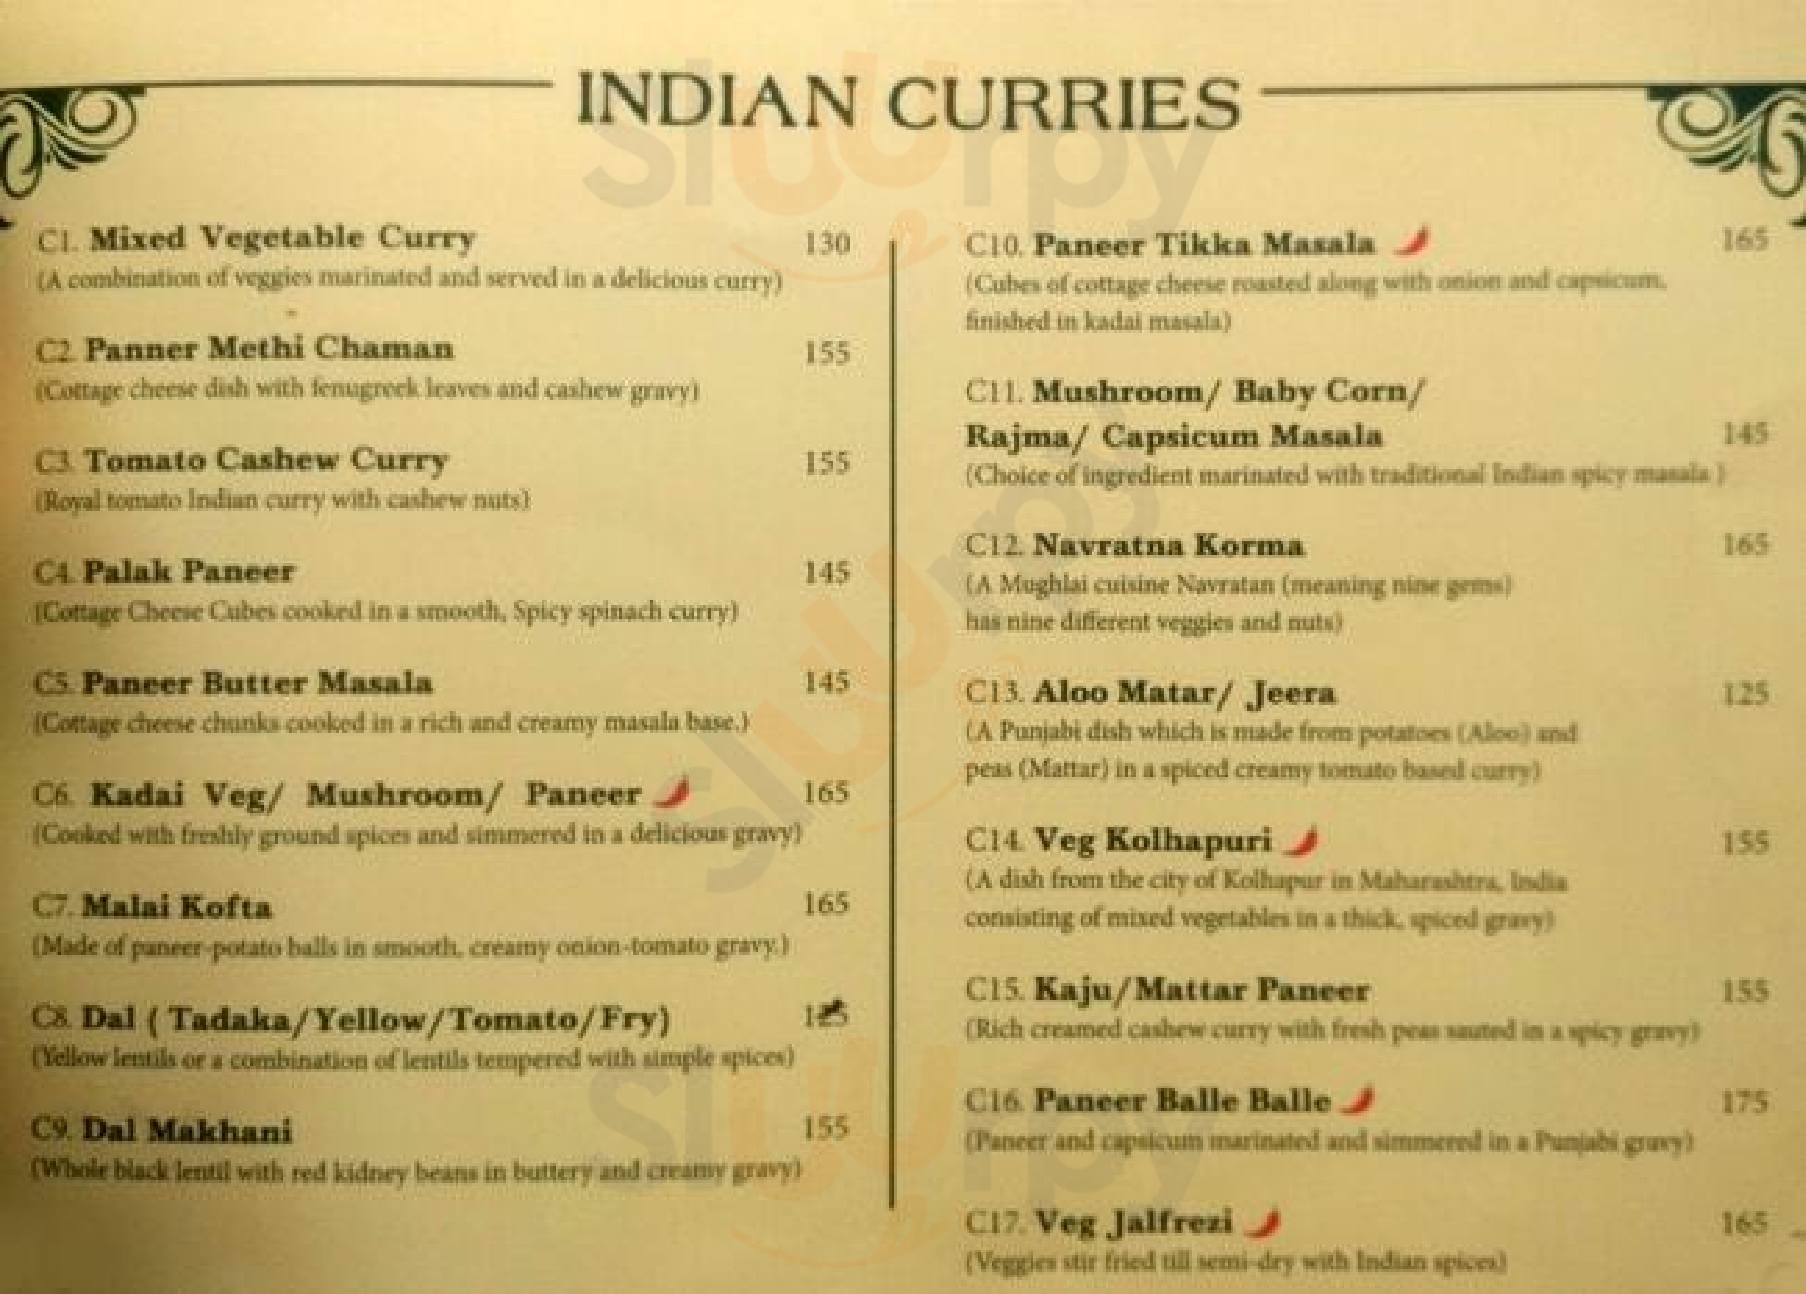 INDIAN CURRIES
C1. Mixed Vegetable Curry 130
(A combination of veggies marinated and served in a delicious curry)
C2. Panner Methi Chaman 155
(Cottage cheese dish with fenugreek leaves and cashew gravy)
C3. Tomato Cashew Curry 155
(Royal tomato Indian curry with cashew nuts)
C4. Palak Paneer 145
(Cottage Cheese Cubes cooked in a smooth, Spicy spinach curry)
C5. Paneer Butter Masala 145
(Cottage cheese chunks cooked in a rich and creamy masala base.)
C6. Kadai Veg/ Mushroom/ Paneer 165
(Cooked with freshly ground spices and simmered in a delicious gravy)
C7. Malai Kofta 165
(Made of paneer-potato balls in smooth, creamy onion-tomato gravy.)
C8. Dal ( Tadaka/Yellow/Tomato/Fry)
(Yellow lentils or a combination of lentils tempered with simple spices)
C9. Dal Makhani 155
(Whole black lentil with red kidney beans in buttery and creamy gravy)
C10. Paneer Tikka Masala 165
(Cubes of cottage cheese roasted along with onion and capsicum,
finished in kadai masala)
C11. Mushroom/ Baby Corn/
Rajma/ Capsicum Masala 145
(Choice of ingredient marinated with traditional Indian spicy masala )
C12. Navratna Korma 165
(A Mughlai cuisine Navratan (meaning nine gems)
has nine different veggies and nuts)
C13. Aloo Matar/ Jeera 125
(A Punjabi dish which is made from potatoes (Aloo) and
peas (Mattar) in a spiced creamy tomato based curry)
C14. Veg Kolhapuri 155
(A dish from the city of Kolhapur in Maharashtra, India
consisting of mixed vegetables in a thick, spiced gravy)
C15. Kaju/Mattar Paneer 155
(Rich creamed cashew curry with fresh peas sauted in a spicy gravy)
C16. Paneer Balle Balle 175
(Paneer and capsicum marinated and simmered in a Punjabi gravy)
C17. Veg Jalfrezi 165
(Veggies stir fried till semi-dry with Indian spices)
sluurpy
sluurpy
sluurpy